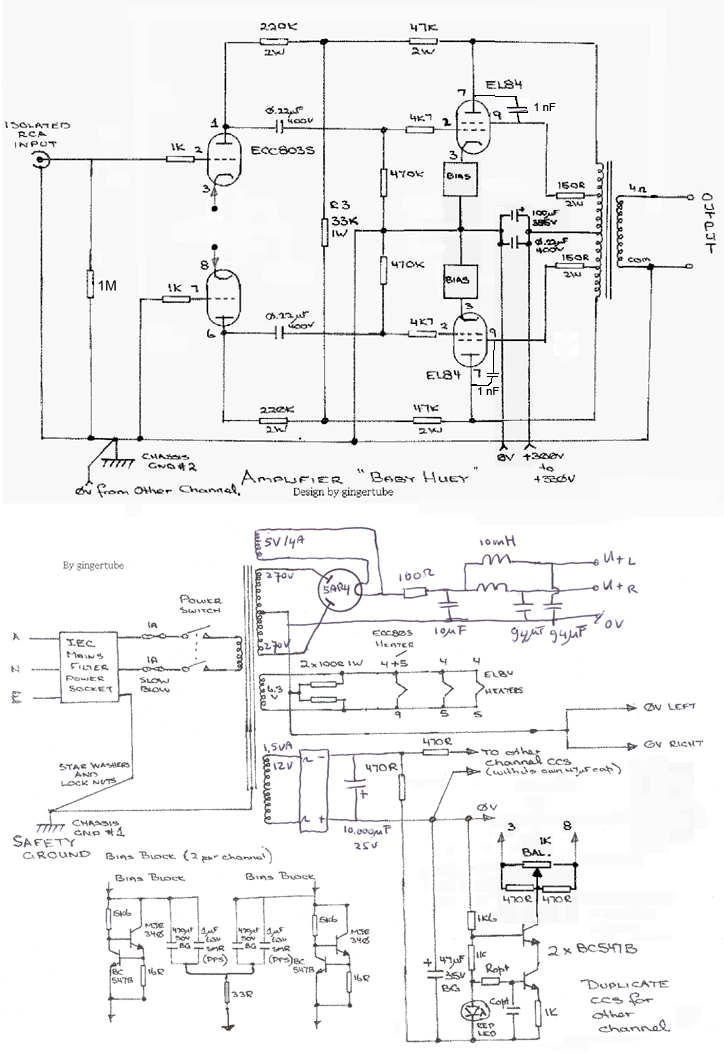 220K
2W
47K
2W
EL84
7
1 nF
9
ISOLATED
RCA
INPUT
1
0.22µF
400V
4K7
2
1K
2
ECC803S
3
3
BIAS
470K
150R
2W
4Ω
OUTPUT
R3
33K
1W
100µF
385V
0.22µF
400V
8
470K
BIAS
150R
2W
COM
1M
1K
7
6
0.22µF
400V
4K7
2
3
9
EL84
7
1 nF
220K
2W
47K
2W
CHASSIS
GND #2
0V
+300V
to
+330V
0V from Other Channel.
AMPLIFIER "BABY HUEY"
Design by gingertube
By gingertube
5V/4A
270V
5AR4
100Ω
10mH
U+L
U+R
0V
10µF
94µF
94µF
270V
POWER
SWITCH
A
1A
N
1A
E
SLOW
BLOW
I.E.C
MAINS
FILTER
POWER
SOCKET
ECC803
HEATER
2x100R 1W
4+5
4
4
EL84
HEATERS
6.3
V
9
5
5
0V LEFT
0V RIGHT
STAR WASHERS
AND
LOCK NUTS
1,5VA
12V
~ -
~ +
470R
470R
TO other
channel CCS
(with its own 47µF cap)
10,000µF
25V
0V
CHASSIS
GND #1
SAFETY
GROUND
3
1K
8
BAL.
470R
470R
BIAS BLOCK (2 per channel)
BIAS BLOCK
BIAS BLOCK
5K6
MJE
340
470µF
50V
BG
1µF
63V
SMR
(PPS)
470µF
50V
BG
1µF
63V
SMR
(PPS)
5K6
MJE
340
BC
547B
16R
BC
547B
16R
33R
1K6
1K
2 x BC547B
47µF
35V
BG
Ropt
Copt
RED
LED
1K
"DUPLICATE
CCS for
other
channel